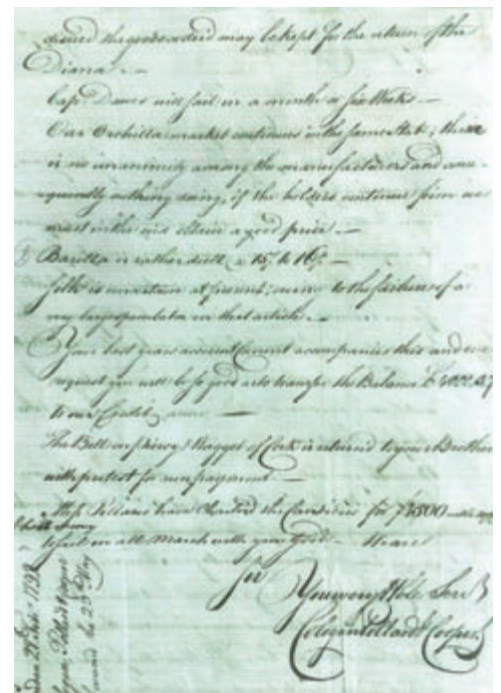 desired the goods ordered may be kept for the return of the
Diana. —
Cap. Dawes will sail in a month or six Weeks —
Our Orchilla market continues in the same State; there
is no unanimity among the manufacturers and conse-
quently nothing doing; if the holders continue firm we
must in the end obtain a good price. —
Barilla is rather dull @ 15/ to 16/ —
Silk is uncertain at present, owing to the failure of a
very large speculator in that article. —
Your last years account Current accompanies this and we
request you will be so good as to transfer the Balance
to our Credit —
The Bill on of Cork is returned to your Brother
with protest for non payment —
have Chartered the for
to sail in all March with your Goods — We are
Sir
Your very Hble Servts
Cologan Pollard & Cooper
1792
Cologan, Pollard & Cooper